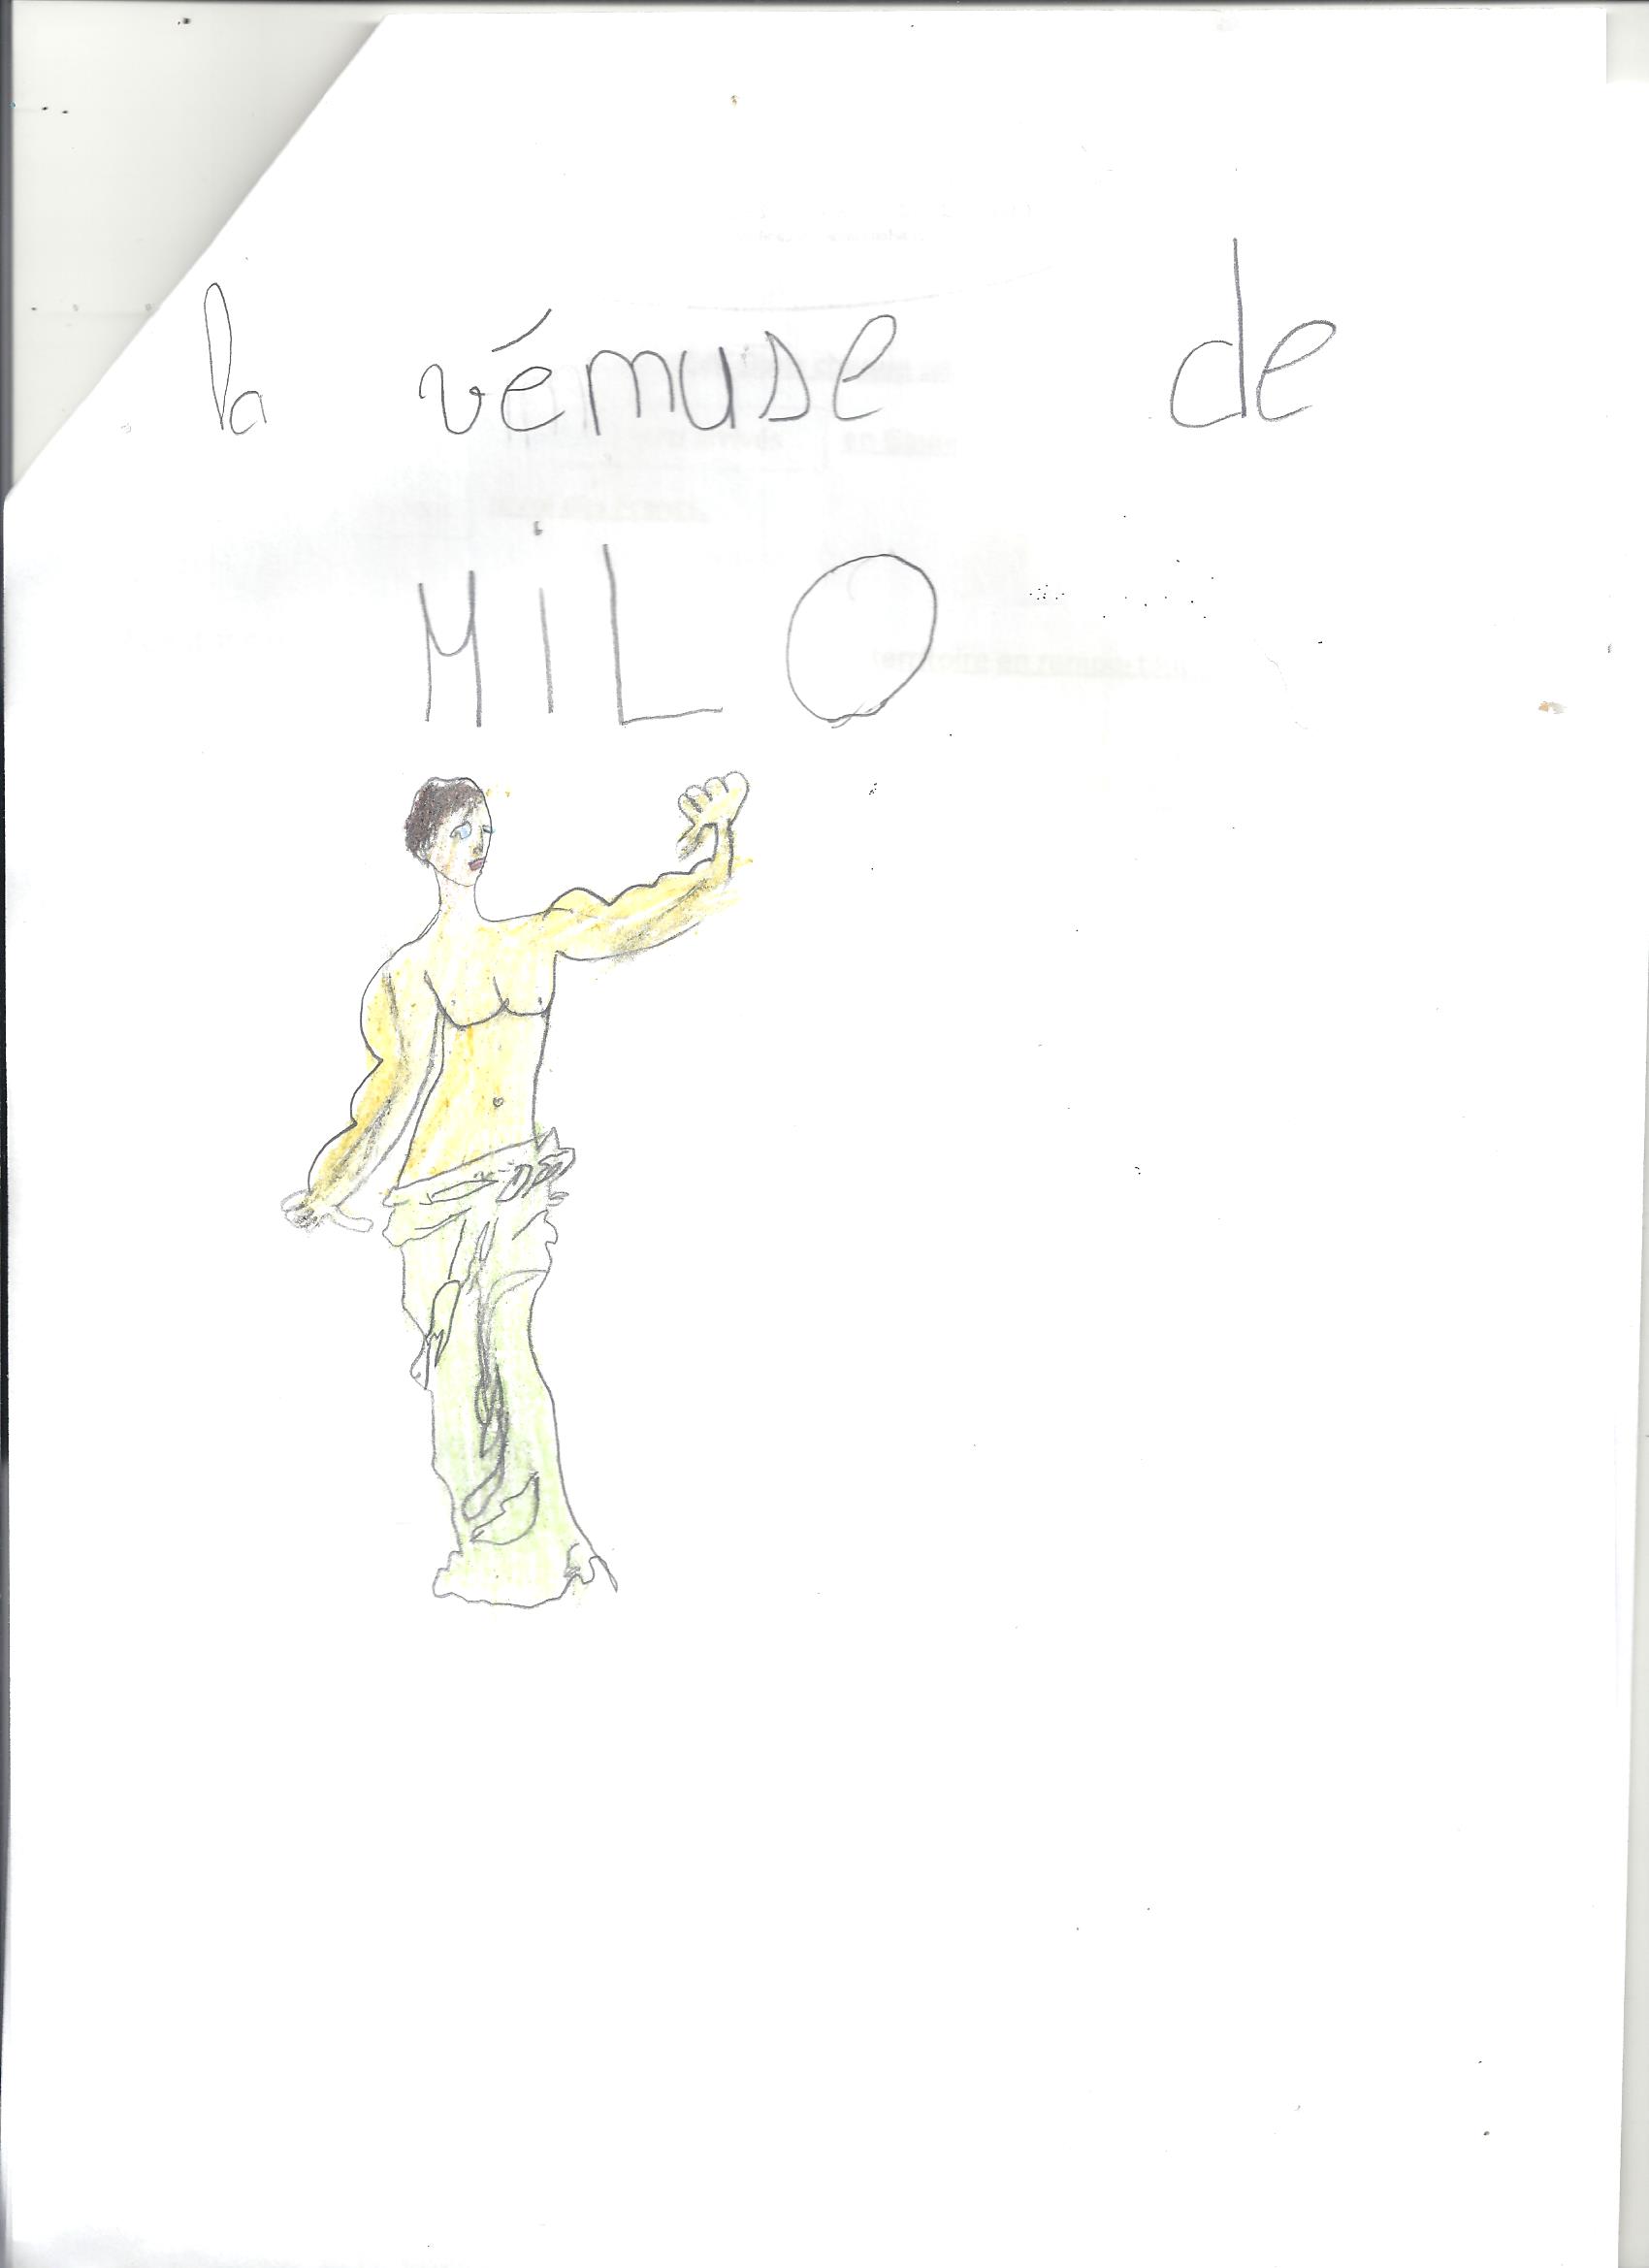 la vémuse de
MiLO